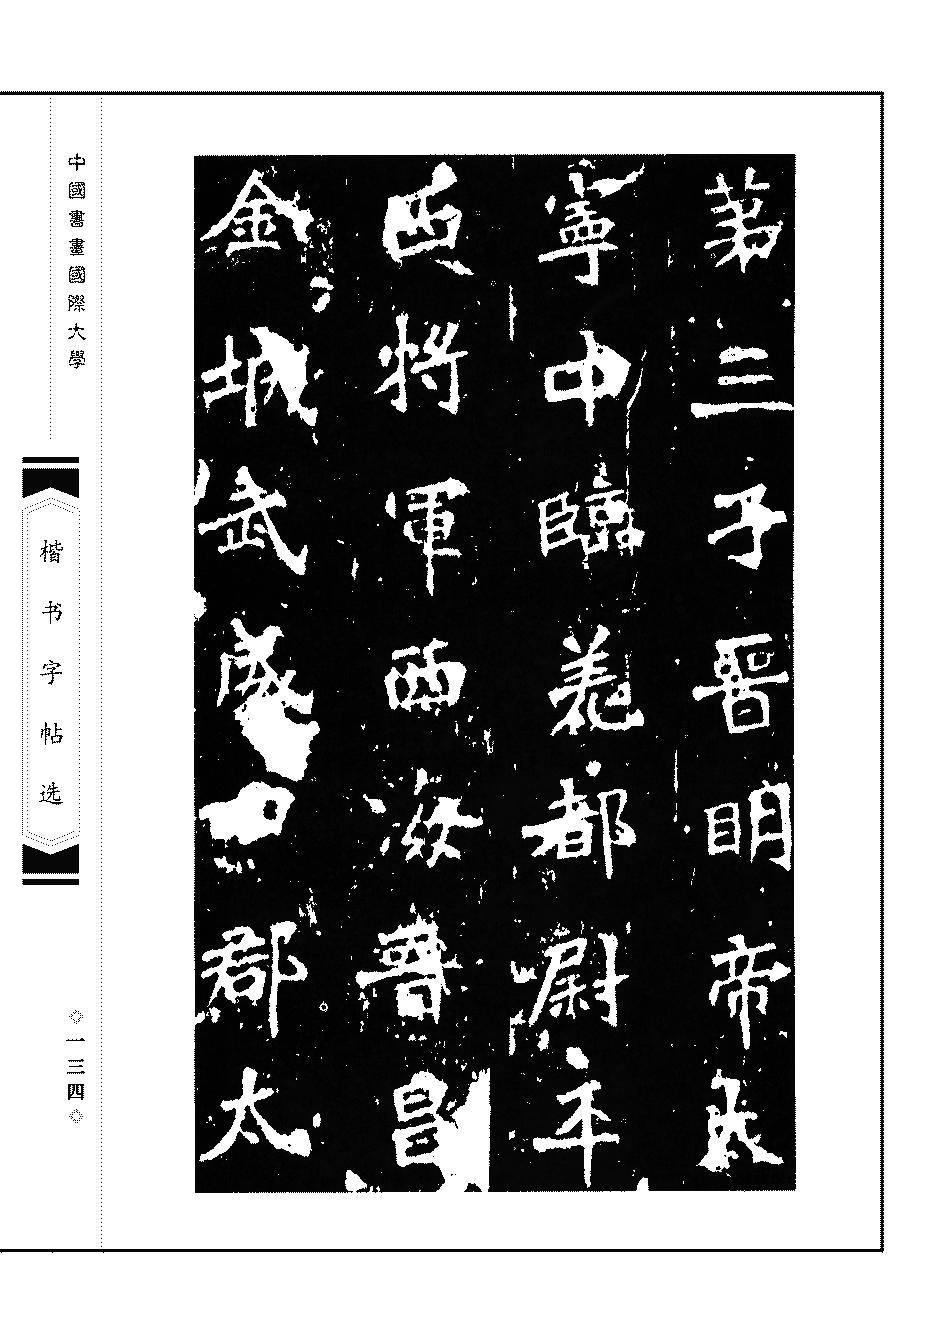 苐三子晉明帝太
寧中臨羌都尉平
西將軍西海晉昌
金城武威郡太
中國書畫國際大學
楷书字帖选
◇一三四◇